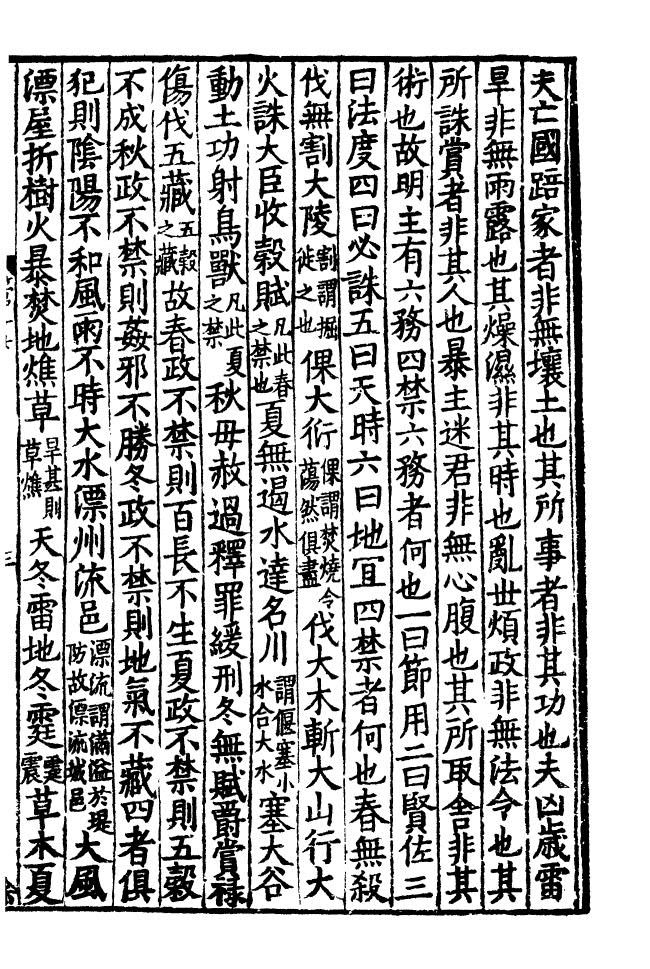 夫亡國踣家者非無壤土也其所事者非其功也夫凶歲雷
旱非無雨露也其燥濕非其時也亂世煩政非無法令也其
所誅賞者非其人也暴主迷君非無心腹也其所取舍非其
術也故明主有六務四禁六務者何也一曰節用二曰賢佐三
曰法度四曰必誅五曰天時六曰地宜四禁者何也春無殺
伐無割大陵割謂掘徙之也倮大衍倮謂焚燒令蕩然俱盡伐大木斬大山行大
火誅大臣收穀賦凡此春之禁也夏無遏水達名川謂偃塞小水合大水塞大谷
動土功射鳥獸凡此夏之禁秋毋赦過釋罪緩刑冬無賦爵賞祿
傷伐五藏五穀之藏故春政不禁則百長不生夏政不禁則五穀
不成秋政不禁則姦邪不勝冬政不禁則地氣不藏四者俱
犯則陰陽不和風雨不時大水漂州流邑漂流謂滿溢於堤防故漂流城邑大風
漂屋折樹火暴焚地燋草旱甚則草燋天冬雷地冬霆霆震草木夏